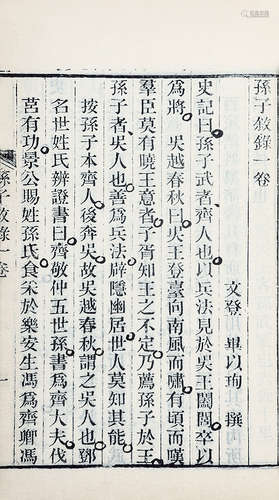 孫子敘錄一卷
文登 畢以珣 撰
史記曰孫子武者齊人也以兵法見於吳王闔閭卒以
爲將 吳越春秋曰吳王登臺向南風而嘯有頃而嘆
羣臣莫有曉王意者子胥知王之不定乃薦孫子於王
孫子者吳人也善爲兵法辟隱幽居世人莫知其能
按孫子本齊人後奔吳故吳越春秋謂之吳人也鄧
名世姓氏辨證書曰齊敬仲五世孫書爲齊大夫伐
莒有功景公賜姓孫氏食采於樂安生馮爲齊卿馮
孫子敘錄一卷 一